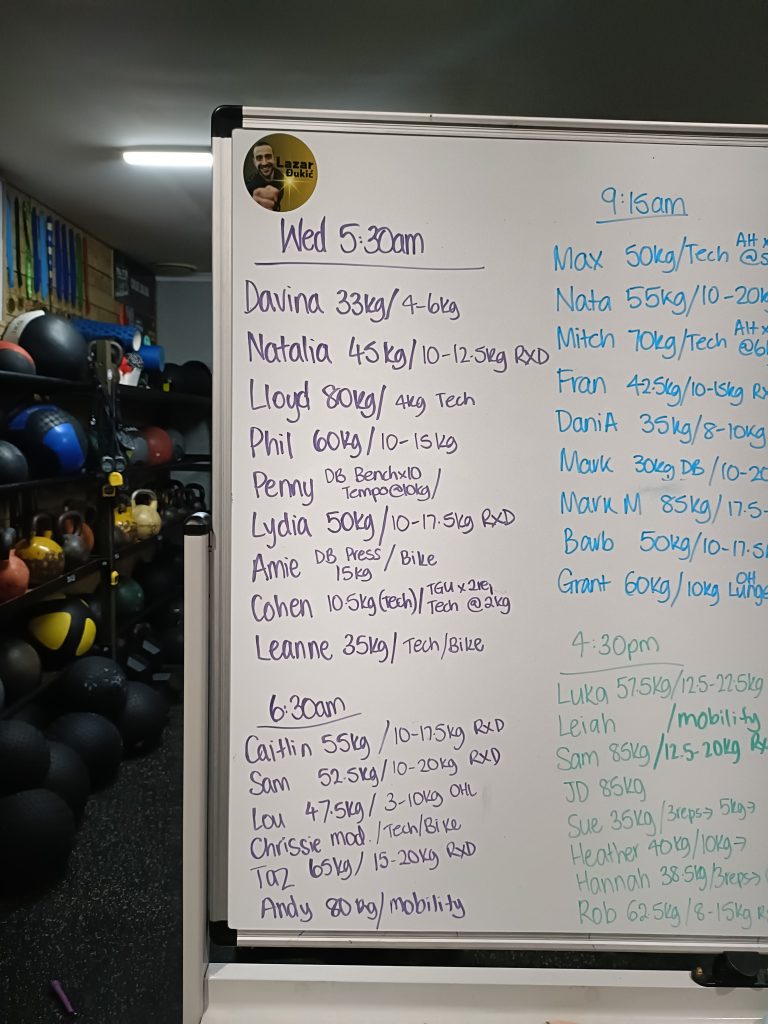 Lazar
Đukić
Wed 5:30am
Davina 33kg/4-6kg
Natalia 45kg/10-12.5kg RXD
Lloyd 80kg/ 4kg Tech
Phil 60kg/10-15kg
Penny DB Benchx10
Tempo@10kg/
Lydia 50kg/10-17.5kg RXD
Amie DB Press/Bike
15kg
Cohen 10.5kg(Tech)/TGU x
Tech @2kg
Leanne 35kg/Tech/Bike
6:30am
Caitlin 55kg/10-17.5kg RXD
Sam 52.5kg/10-20kg RXD
Lou 47.5kg/3-10kg OHL
Chrissie mod./Tech/Bike
Taz 65kg/15-20kg RXD
Andy 80kg/mobility
9:15am
Max 50kg/Tech
Nata 55kg/10-20k
Mitch 70kg/Tech
Fran 42.5kg/10-15kg Rx
DaniA 35kg/8-10kg
Mark 30kg DB/10-20
Mark M 85kg/17.5-
Barb 50kg/10-17.5
Grant 60kg/10kg OH
Lunge
4:30pm
Luka 57.5kg/12.5-22.5kg
Leiah /mobility
Sam 85kg/12.5-20kg
JD 85kg
Sue 35kg/3reps→ 5kg→
Heather 40kg/10kg→
Hannah 38.5kg/3reps→
Rob 62.5kg/8-15kg